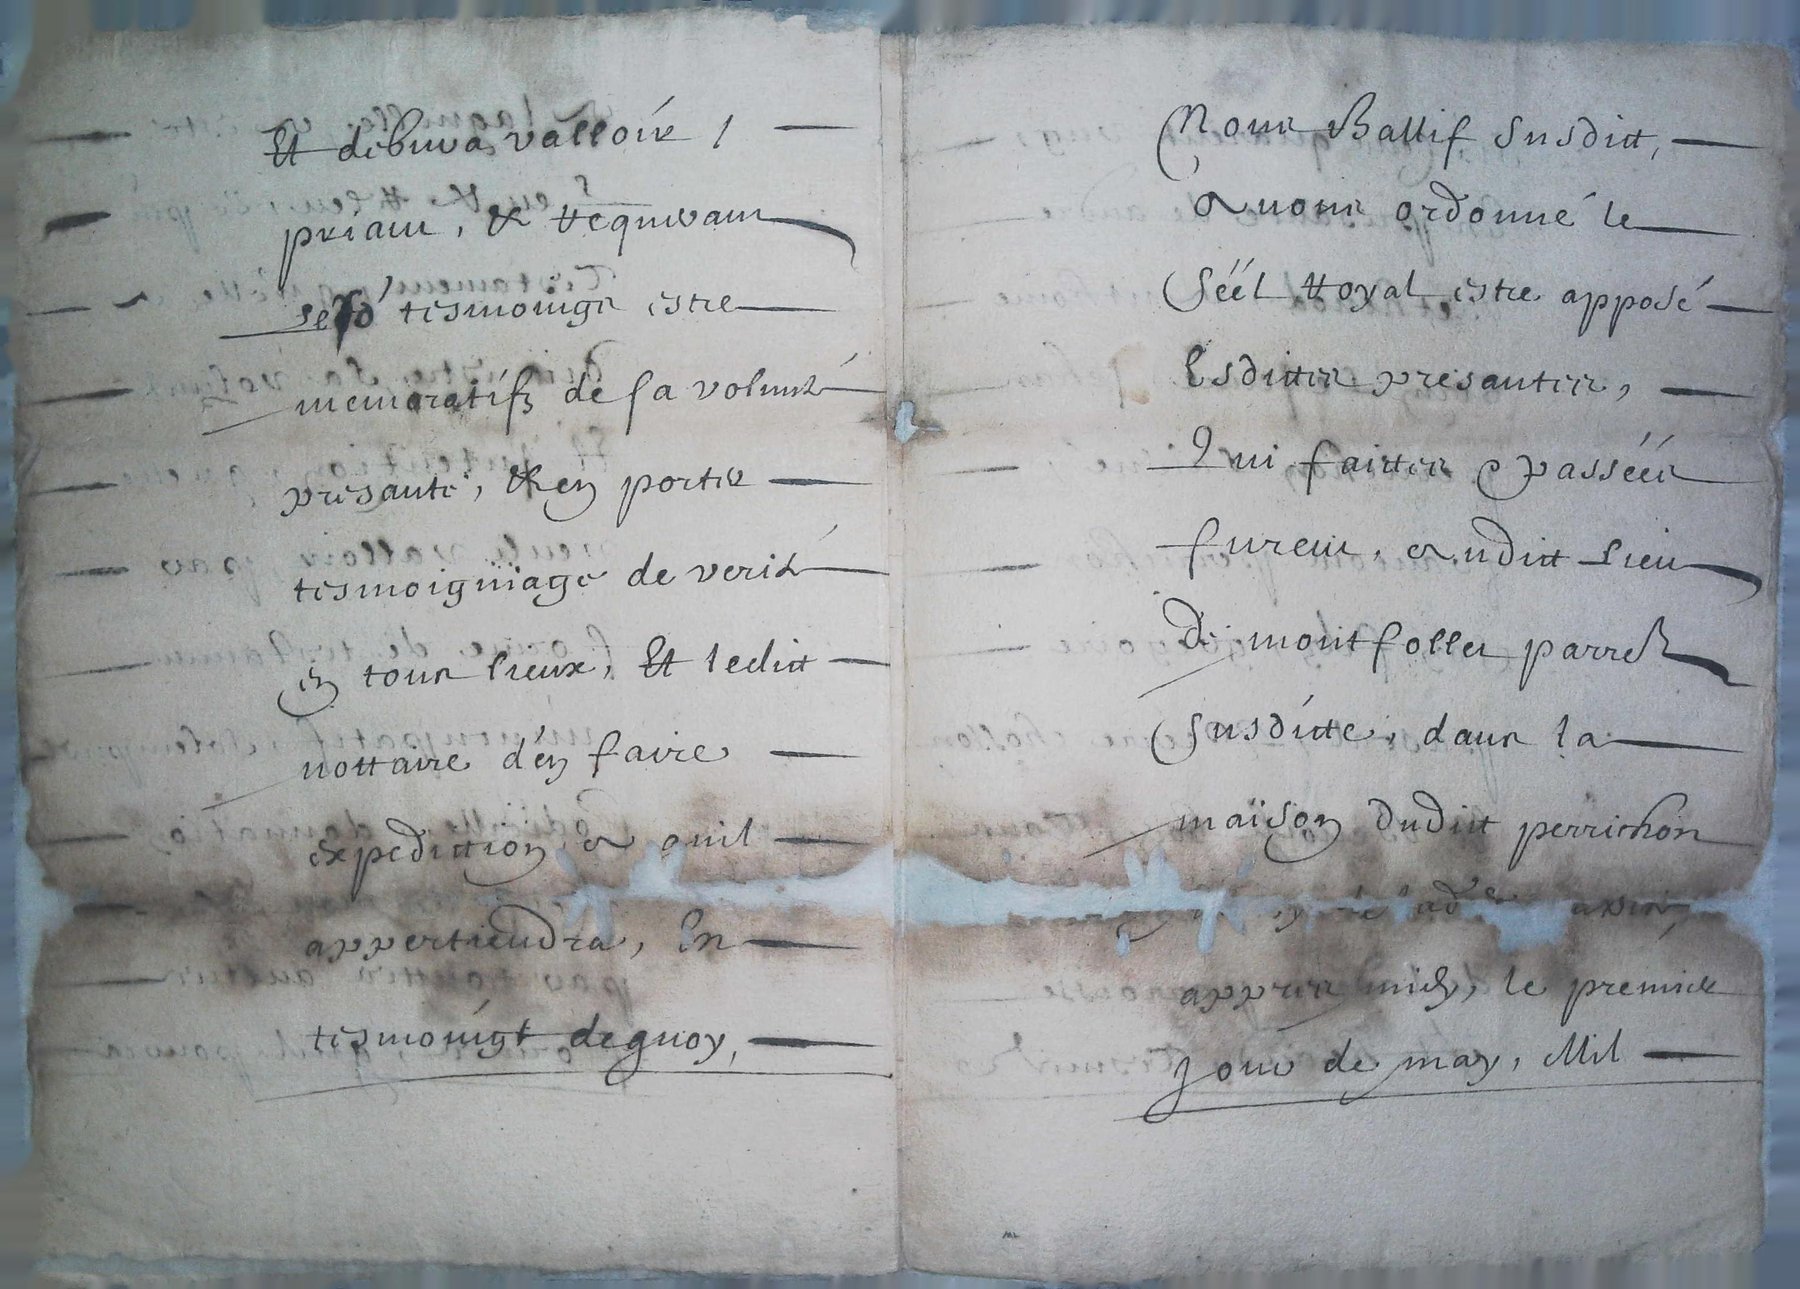 Et debvra valloir /
priant, & requerant
sesd tesmoings estre
mémoratifz de sa volunté
presante, & en porter
tesmoigniage de verité
en tous lieux, Et ledit
nottaire d'en faire
expedittion, ou quil
appertiendra, En
tesmoingt dequoy,
Nous Ballif susditt,
avons ordonné le
Séel Royal estre apposé
Esdittes presantes,
Qui faittes & passéés
furent, audit lieu
De montfollet parr
susditte, dans la
maison duditt perrichon
appres midy, le premier
Jour de may, Mil